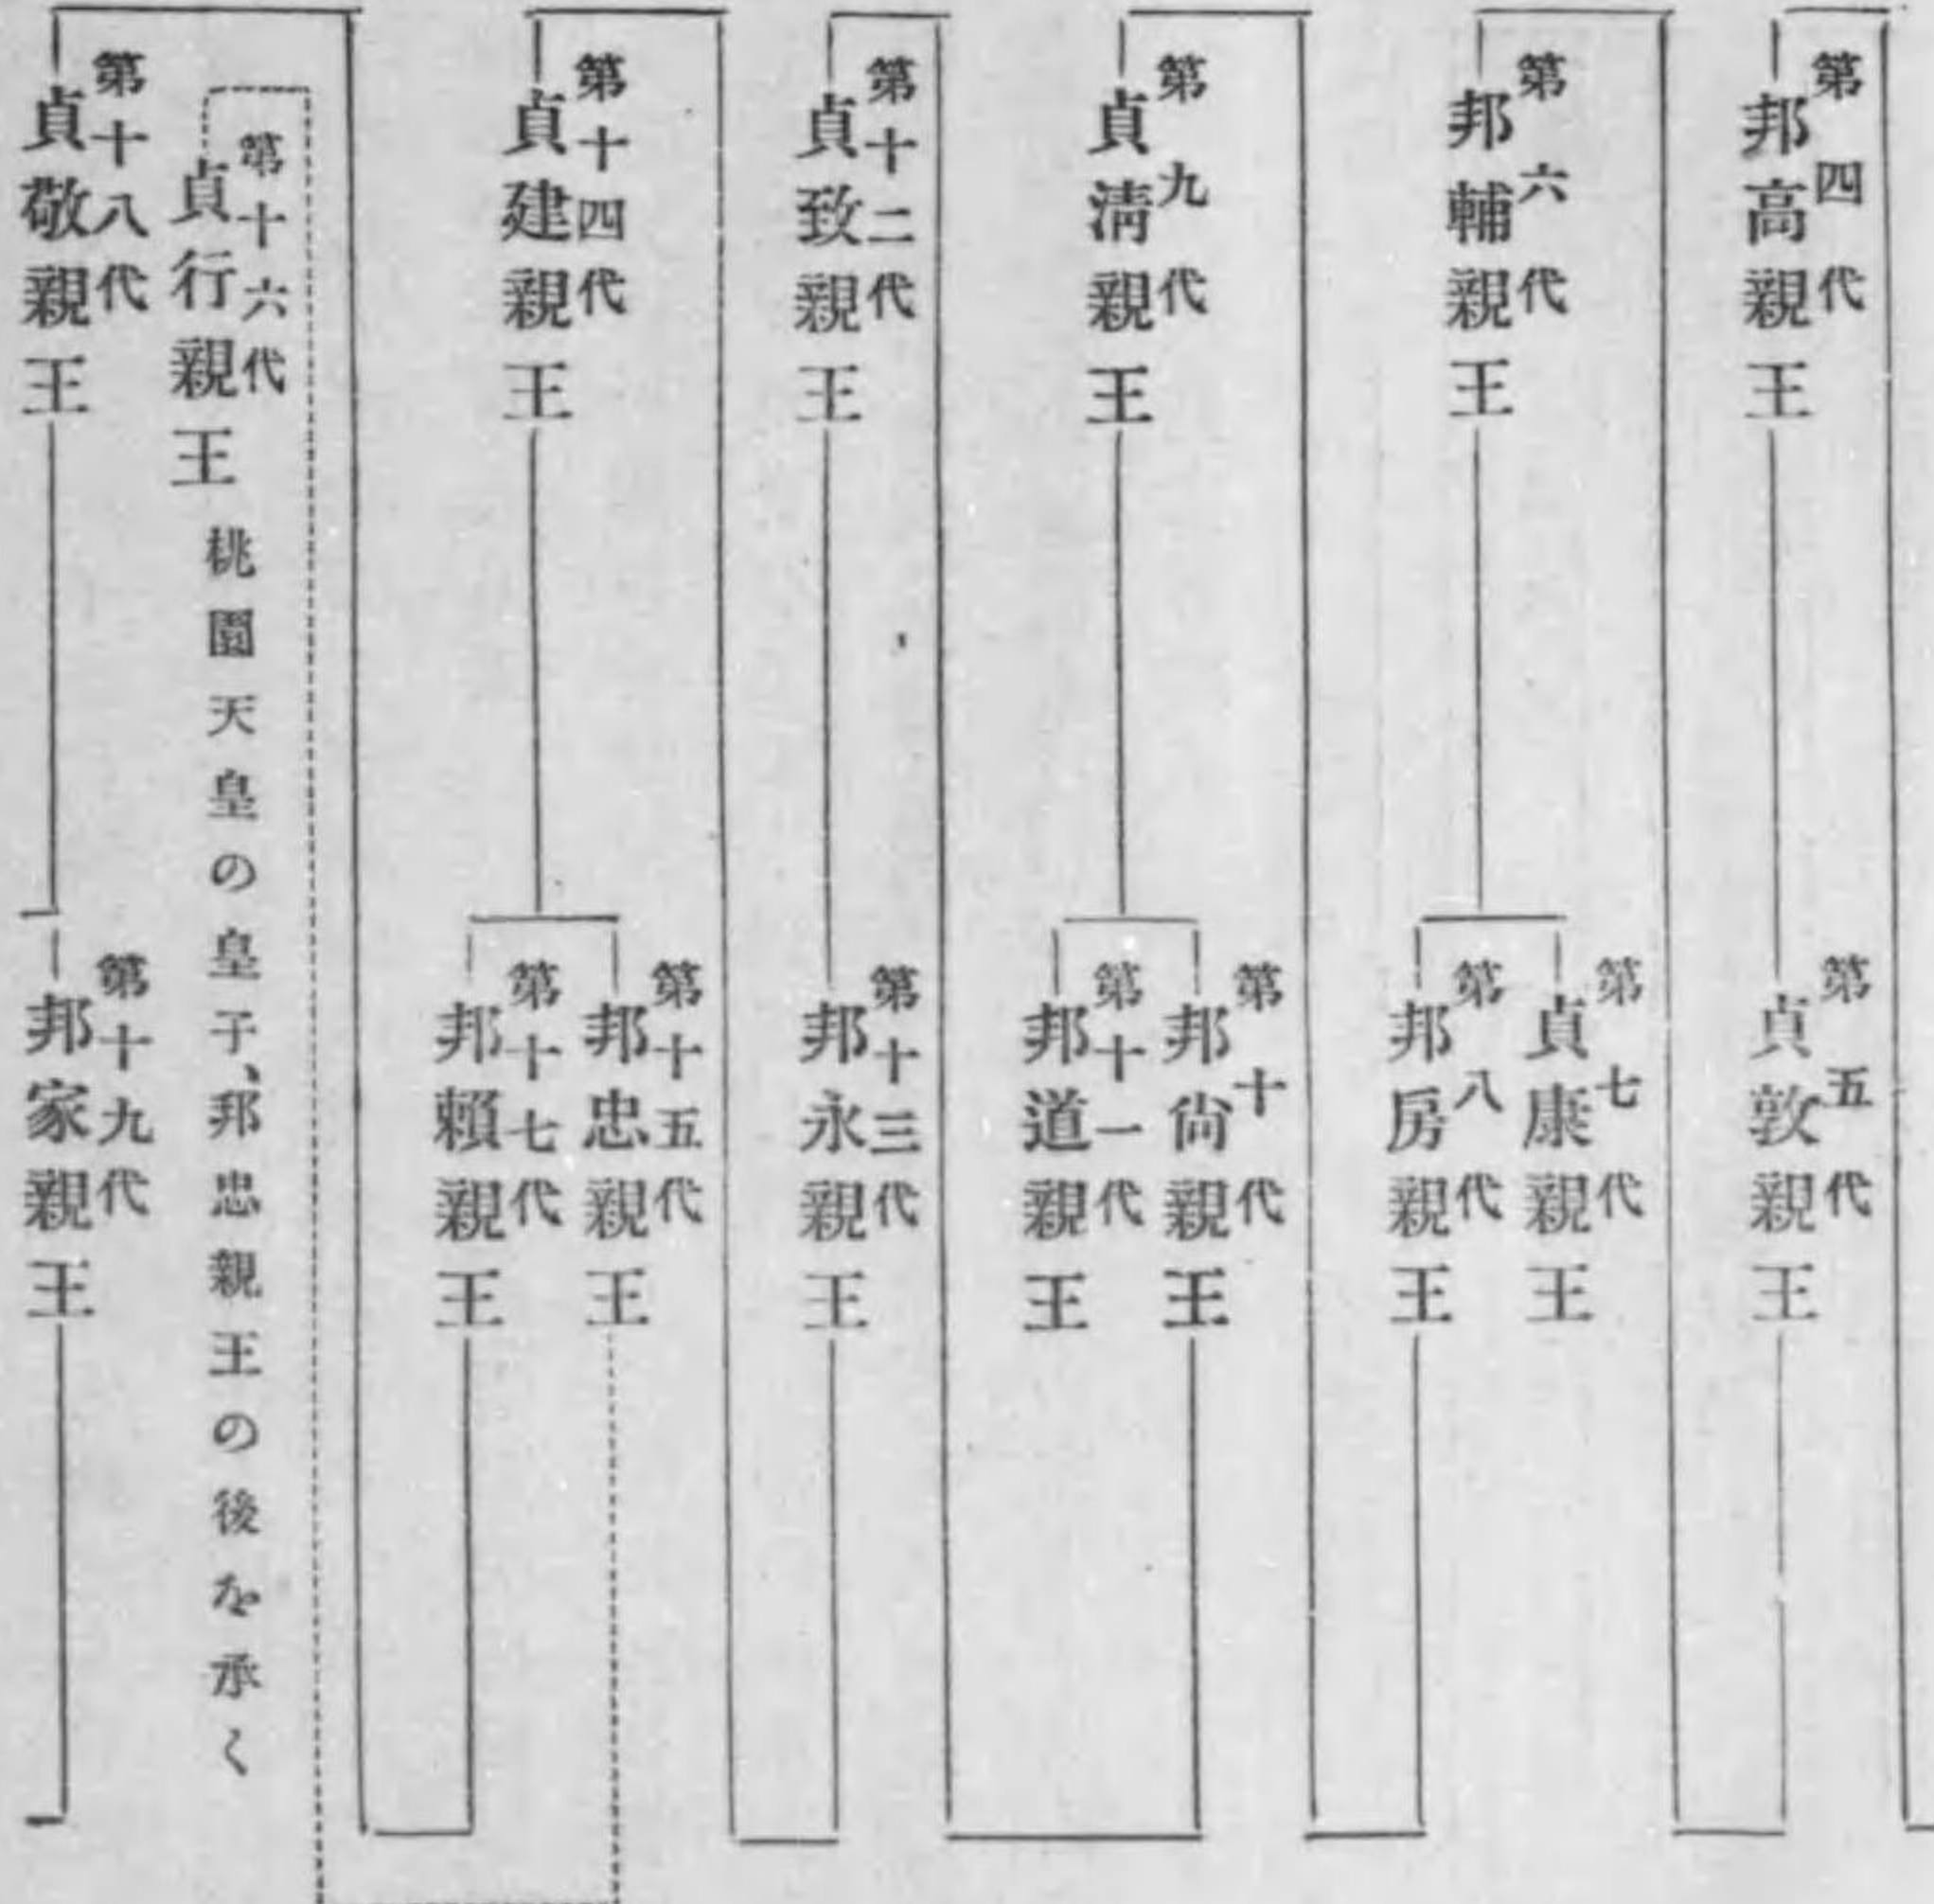 第四代
邦高親王
第五代
貞敦親王
第六代
邦輔親王
第七代
貞康親王
第八代
邦房親王
第九代
貞淸親王
第十代
邦尙親王
第十一代
邦道親王
第十二代
貞致親王
第十三代
邦永親王
第十四代
貞建親王
第十五代
邦忠親王
第十七代
邦賴親王
第十六代
貞行親王 桃園天皇の皇子、邦忠親王の後を承く
第十八代
貞敬親王
第十九代
邦家親王